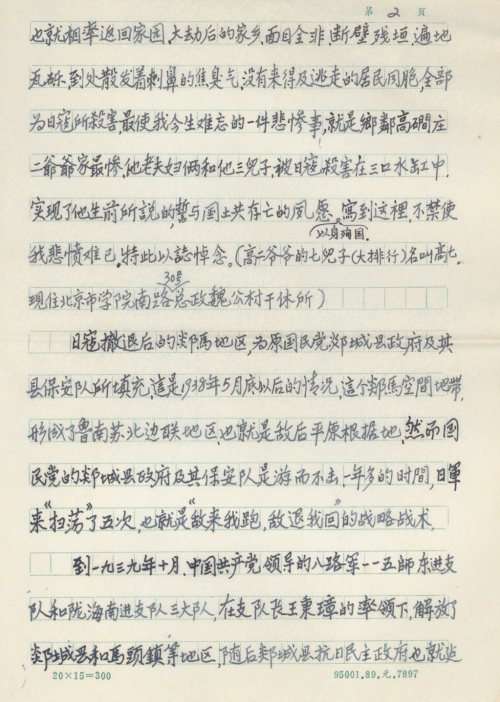 第 2 页
也就相率返回家园、大劫后的家乡、面目全非、断壁残垣、遍地
瓦砾、到处散发着刺鼻的焦臭气、没有来得及逃走的居民同胞、全部
为日寇所殺害、最使我今生难忘的一件悲惨事、就是鄉鄰高磵庄
二爷爷家最惨、他老夫妇俩和他三兒子、被日寇殺害在三口水缸中、
实现了他生前所説的、誓与国土共存亡的夙愿。寫到这裡、不禁使
以身殉国
我悲愤难已。特此以誌悼念。(高二爷爷的七兒子(大排行)名叫高七、
30号
现住北京市学院南路总政魏公村干休所)
日寇撤退后的郯馬地区、为原国民党郯城县政府及其
县保安队所填充、這是1938年5月底以后的情况、這个郯馬空間地带、
形成了鲁南苏北边联地区、也就是敌后平原根据地、然而国
民党的郯城县政府及其保安队是游而不击、一年多的时間、日軍
来“扫荡”了五次、也就是“敌来我跑、敌退我回”的战略战术、
到一九三九年十月、中国共产党领导的八路軍一一五師东进支
队和陇海南进支队三大队、在支队长王秉璋的率领下、解放了
郯城县和馬頭鎮等地区、随后郯城县抗日民主政府也就跟
20×15=300
95001.89.元.7897